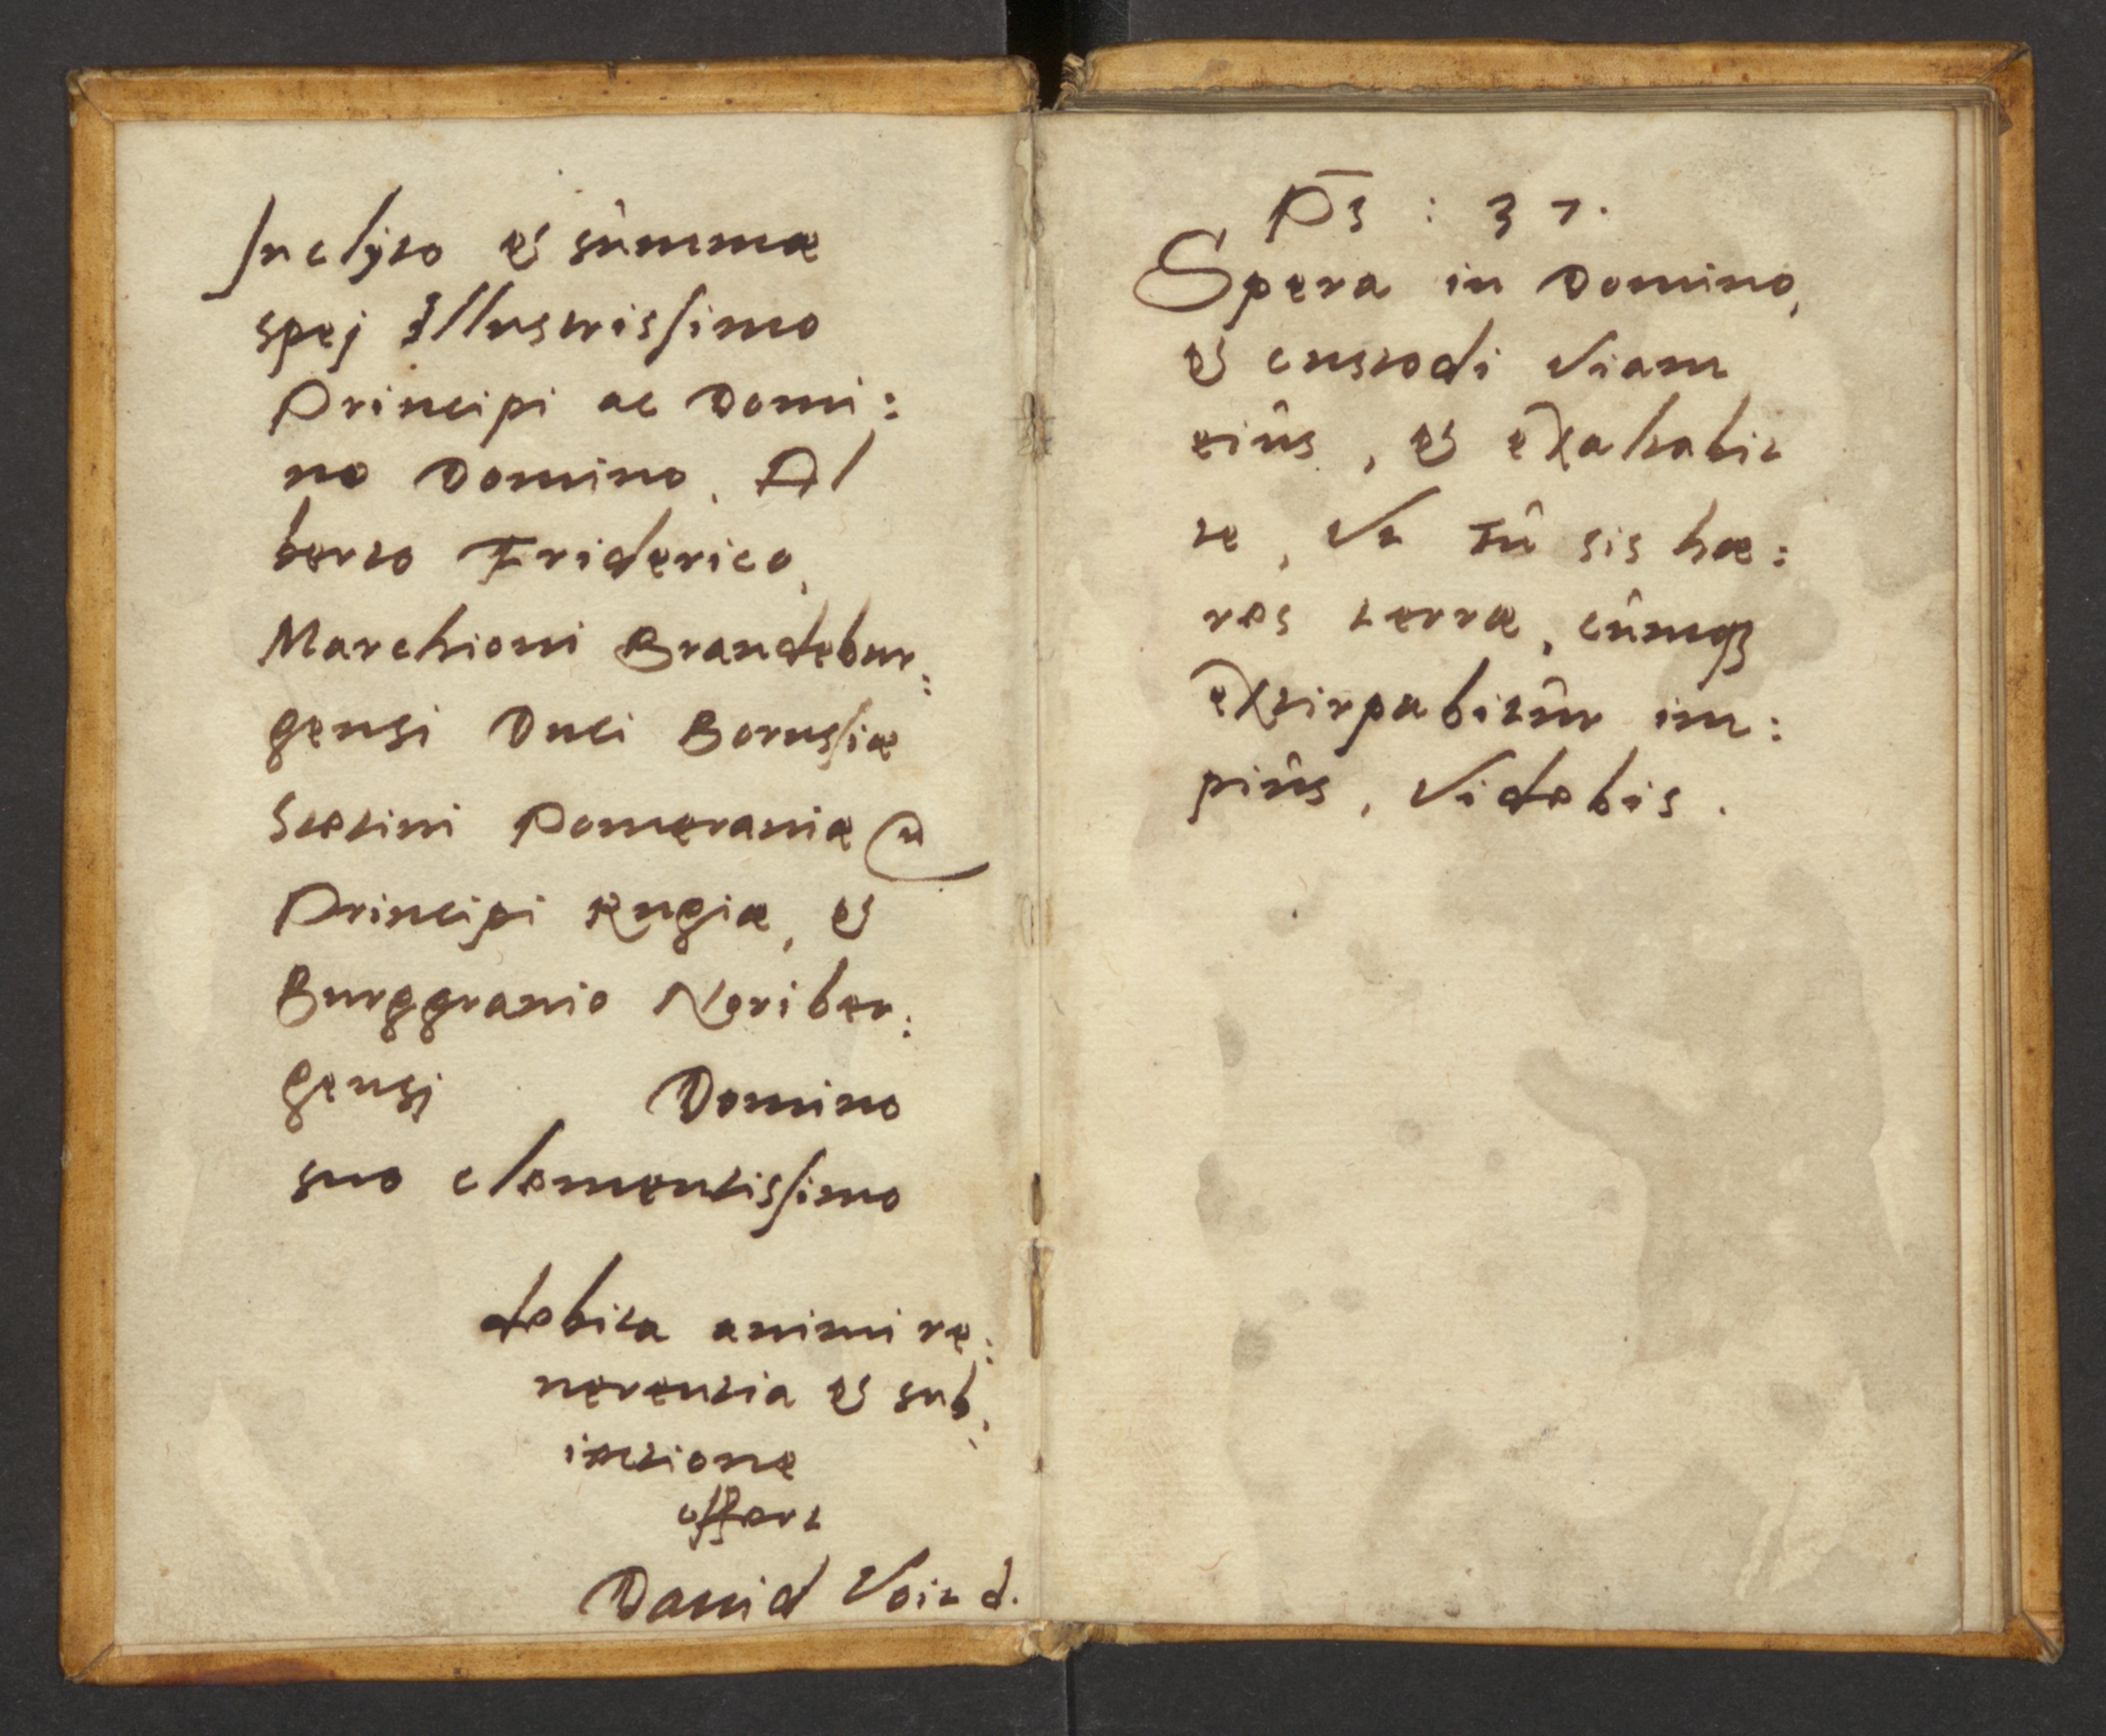 Inclÿto et sûmmæ
spej Illustrissimo
Principi ac Domi:
no Domino, Al
berto Friderico,
Marchioni Brandebur:
gensi Duci Borussiæ
Stetini Pomeraniæ
Principi Rugiæ, et
Burggrauio Noriber:
gensj Domino
suo clementissimo
debita animi re:
uerentia et sub:
iectione
offert
Dauid Voit d.
Ps : 37.
Spera in Domino,
et custodi viam
eiûs, et exaltabit
te, vt tû sis hæ:
res terræ, cûmqȝ
extirpabitûr im:
piûs, videbis.